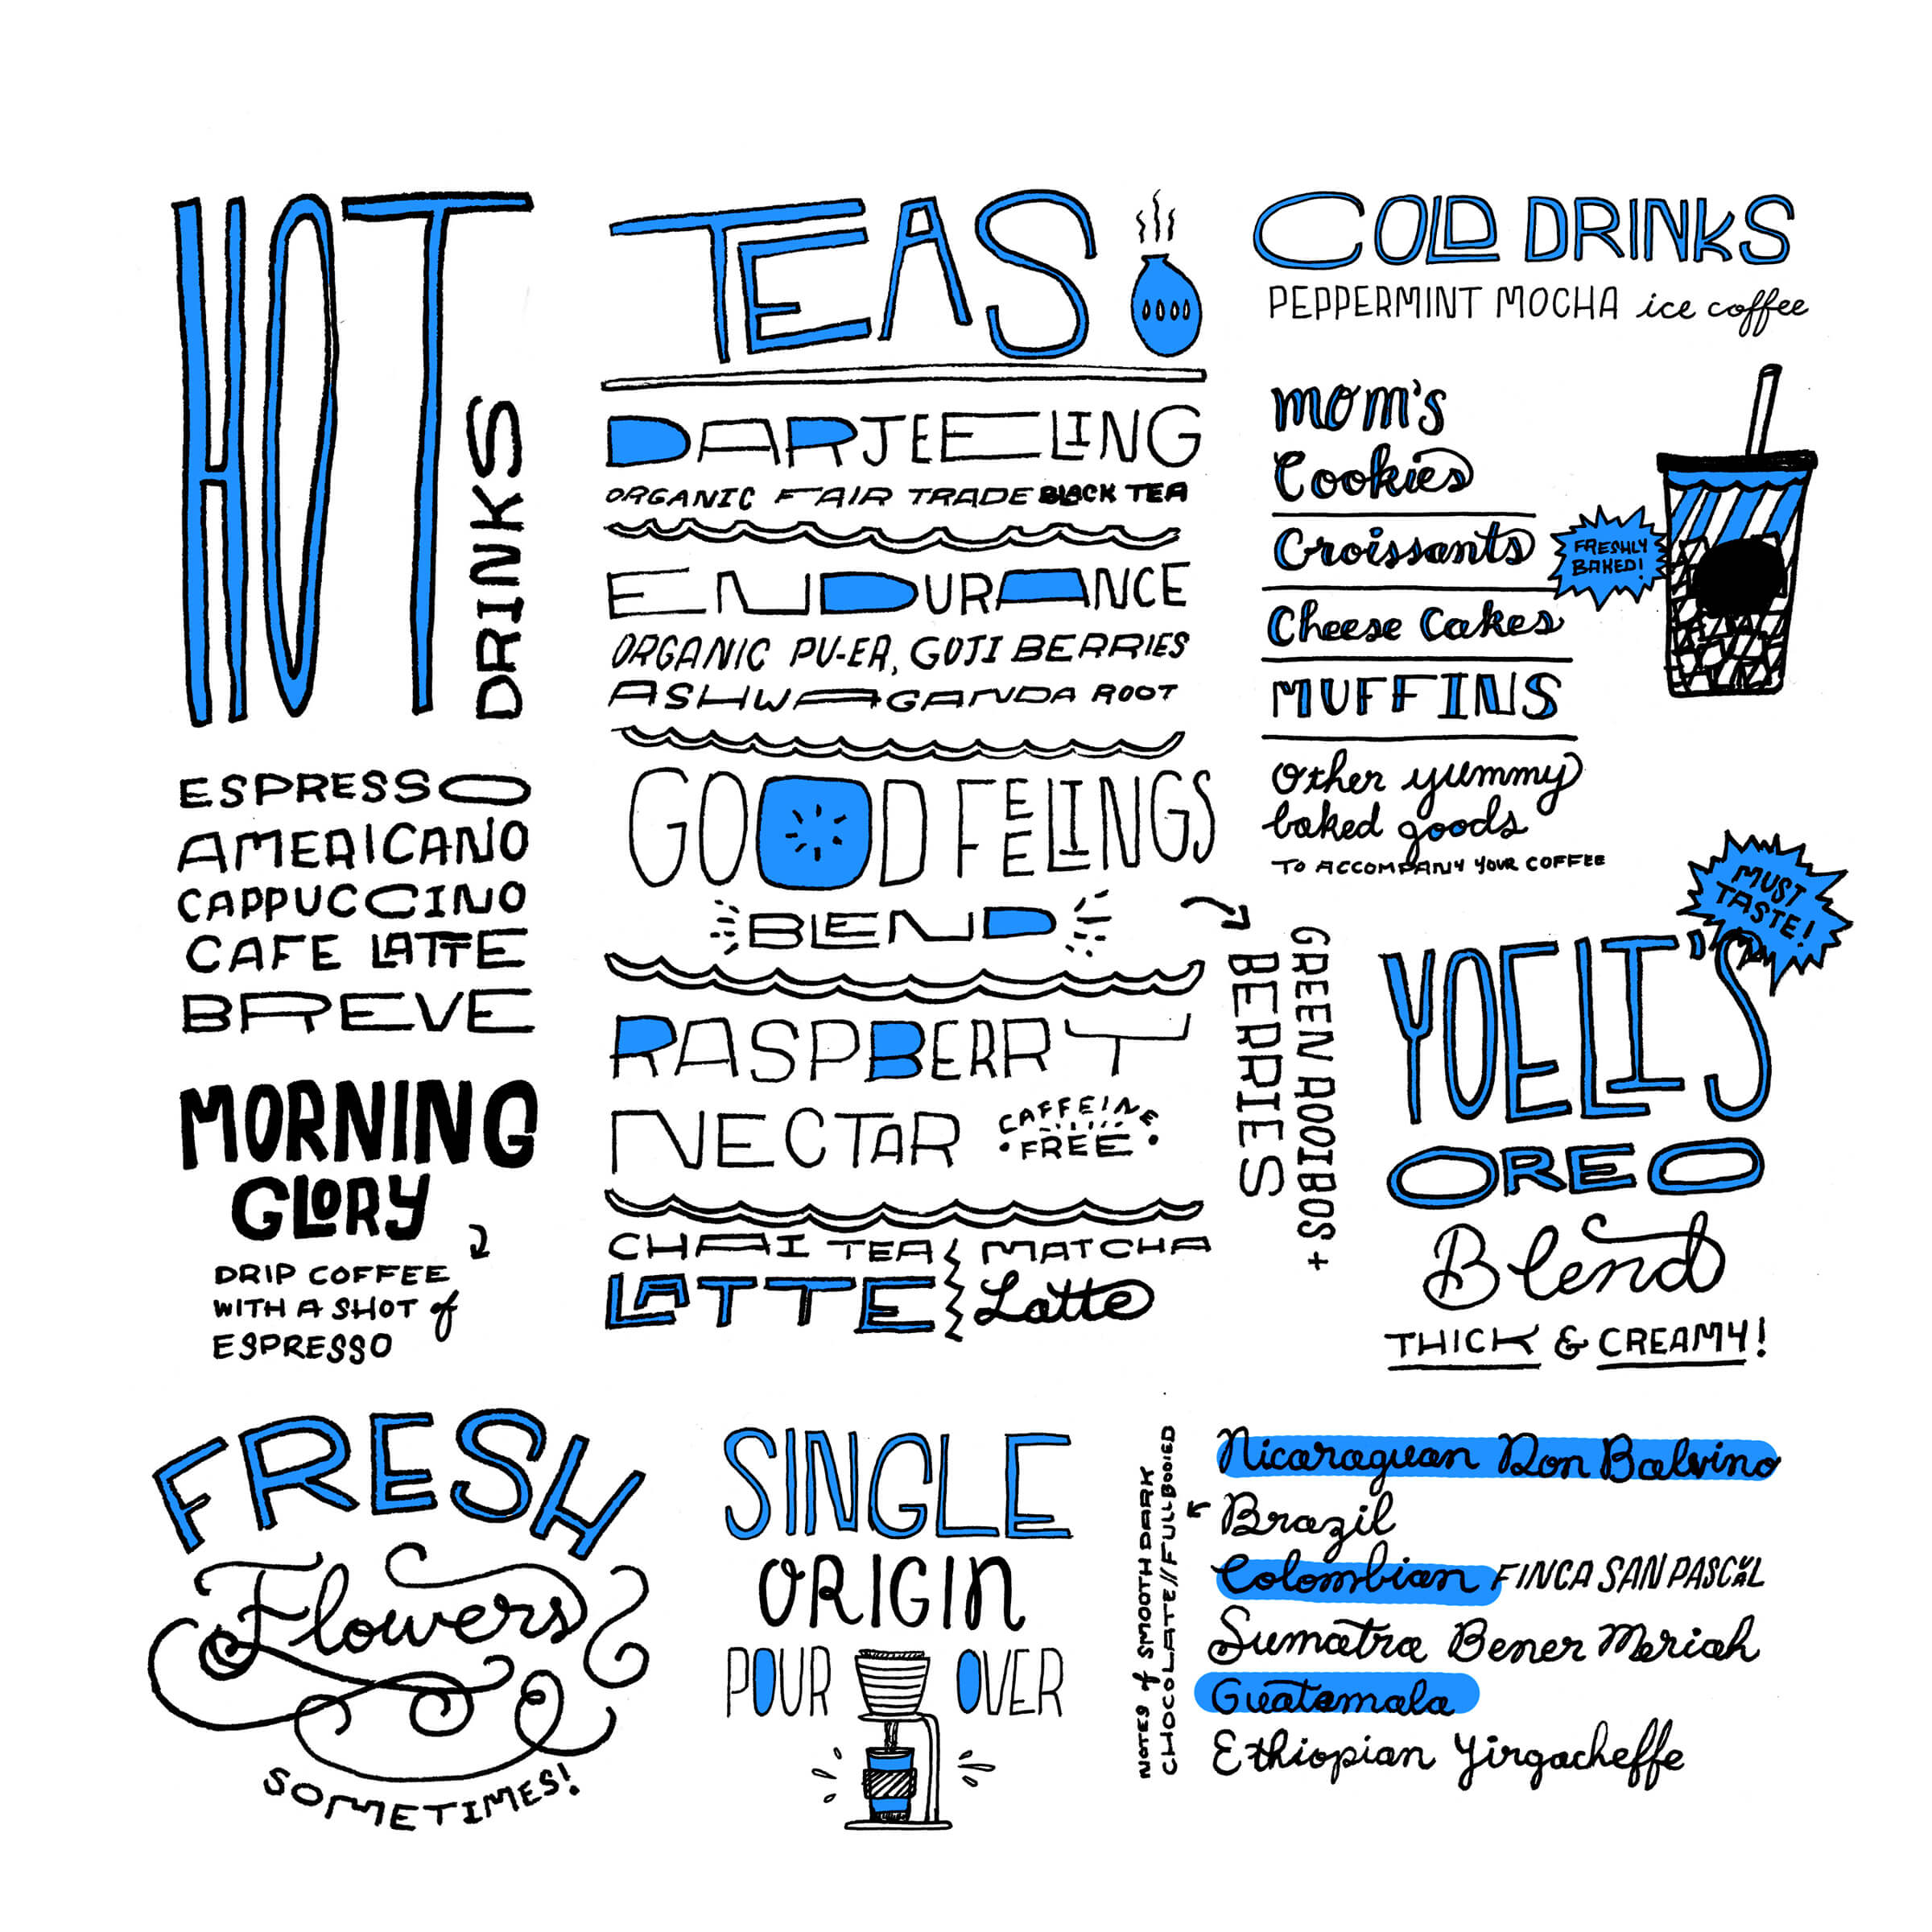 HOT
DRINKS
ESPRESSO
AMERICANO
CAPPUCCINO
CAFE LATTE
BREVE
MORNING
GLORY
DRIP COFFEE
WITH A SHOT of
ESPRESSO
TEAS
DARJEELING
ORGANIC FAIR TRADE BLACK TEA
ENDURANCE
ORGANIC PU-ER, GOJI BERRIES
ASHWAGANDA ROOT
GOOD FEELINGS
BLEND
GREEN ROOIBOS +
BERRIES
RASPBERRY
NECTAR
CAFFEINE
FREE
CHAI TEA
LATTE
MATCHA
Latte
COLD DRINKS
PEPPERMINT MOCHA ice coffee
MOM'S
Cookies
Croissants
FRESHLY
BAKED!
Cheese Cakes
MUFFINS
Other yummy
baked goods
TO ACCOMPANY YOUR COFFEE
MUST
TASTE!
YOELI'S
OREO
Blend
THICK & CREAMY!
FRESH
Flowers
SOMETIMES!
SINGLE
ORIGIN
POUR OVER
NOTES of SMOOTH DARK
CHOCOLATE//FULL BODIED
Nicaraguan Don Balvino
Brazil
Colombian FINCA SAN PASCUAL
Sumatra Bener Meriah
Guatamala
Ethiopian Yirgacheffe